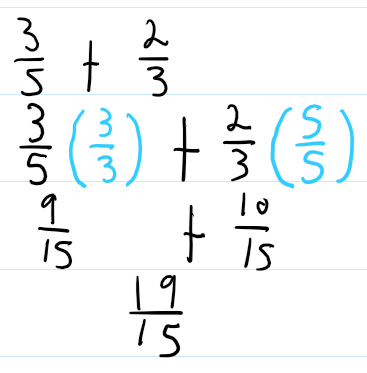 3/5 + 2/3
3/5 (3/3) + 2/3 (5/5)
9/15 + 10/15
19/15